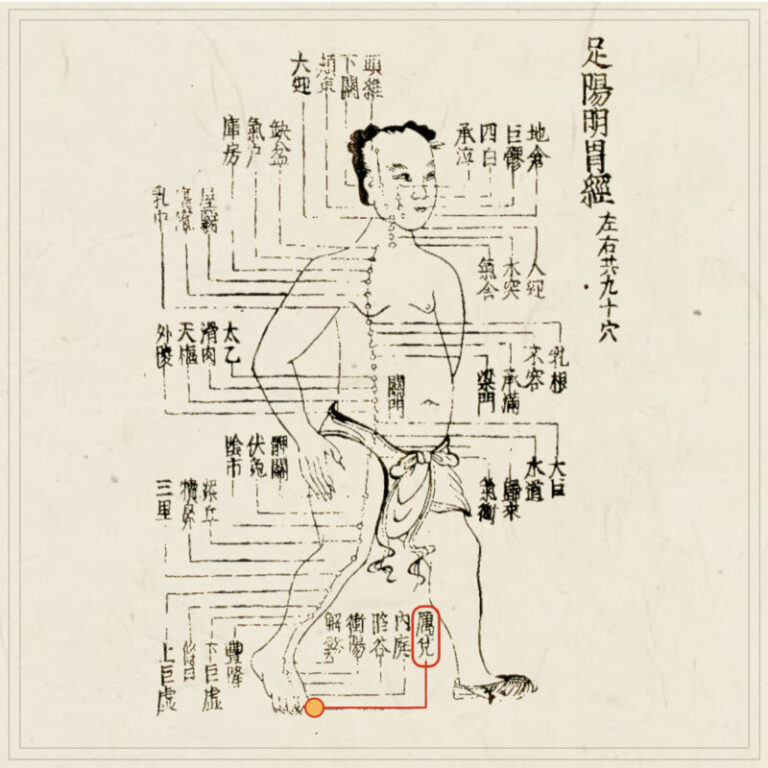 足陽明胃經
左右共九十穴
頭維
下關
頰車
大迎
缺盆
氣户
庫房
地倉
巨髎
四白
承泣
屋翳
乳中
人迎
水突
氣舍
太乙
滑肉
天樞
外陵
乳根
不容
承滿
梁門
關門
大巨
水道
歸來
氣衝
髀關
伏兔
陰市
犢鼻
三里
厲兌
內庭
陷谷
衝陽
解谿
豐隆
下巨虛
上巨虛